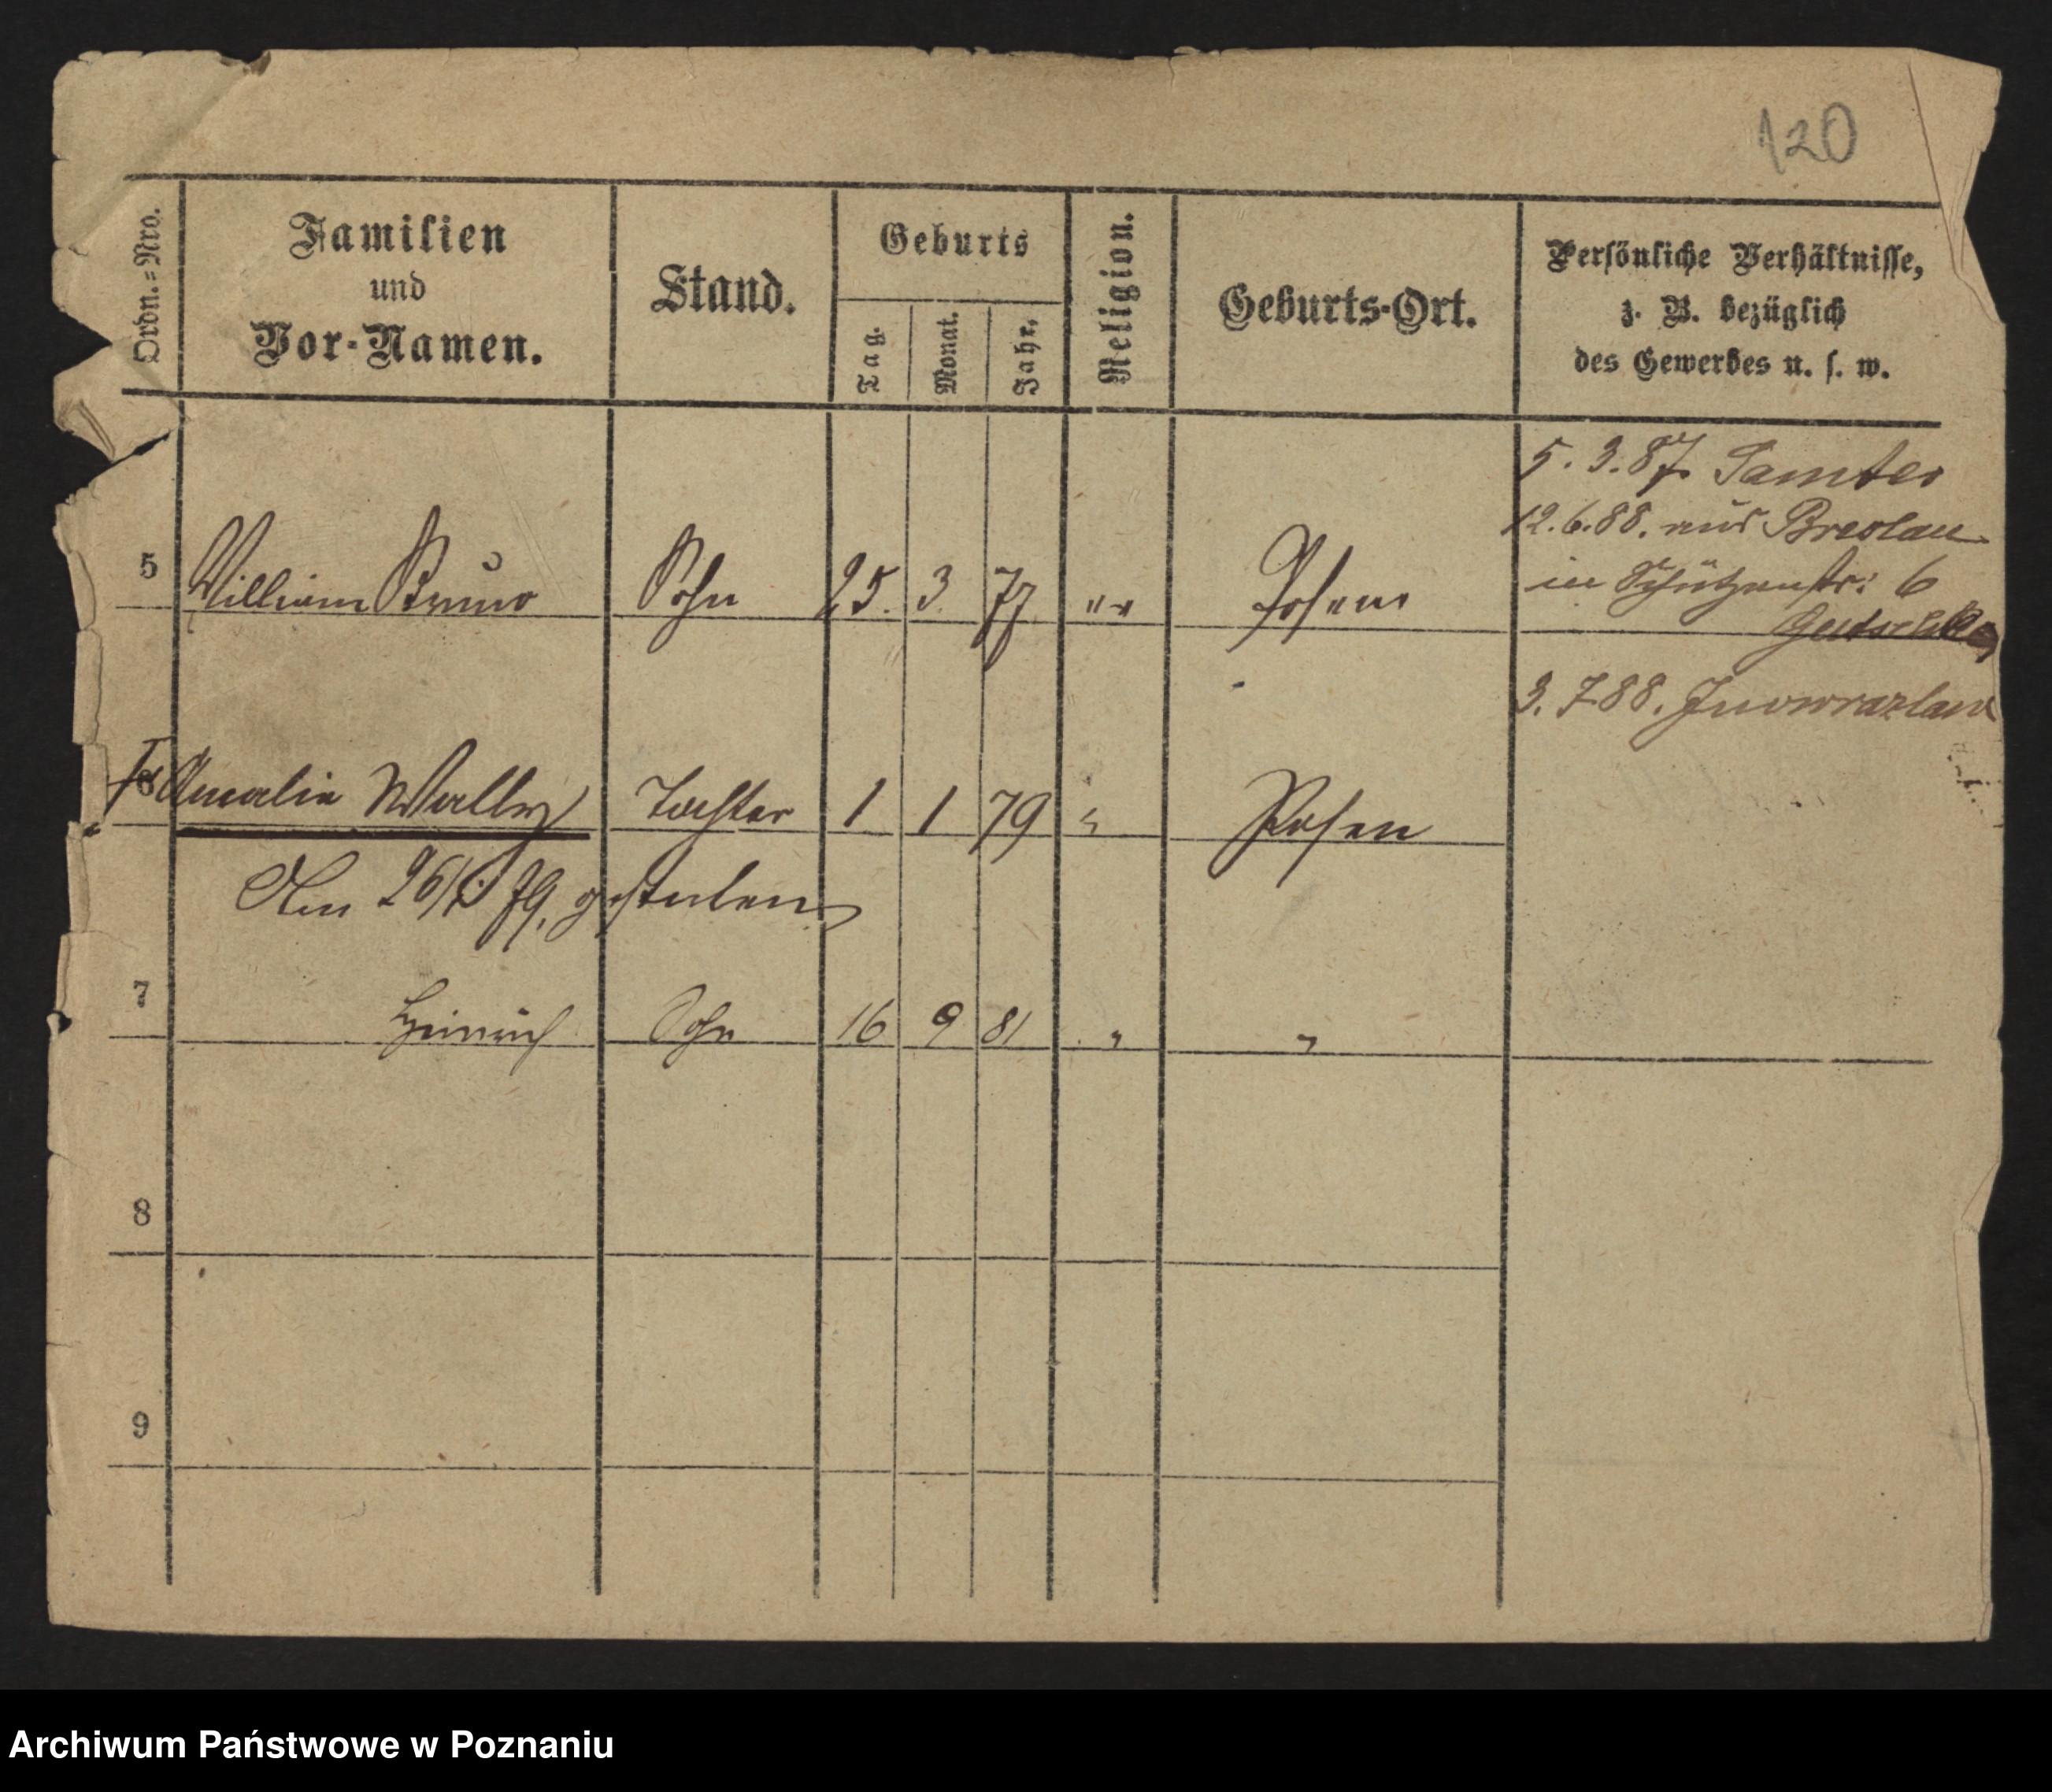 120
Ordn.=Nro.
Familien
und
Vor-Namen.
Stand.
Geburts
Tag.
Monat.
Jahr.
Religion.
Geburts-Ort.
Persönliche Verhältnisse,
z. B. bezüglich
des Gewerbes u. s. w.
5. 3. 87 Samter
12. 6. 88. aus Breslau
in Schützenstr: 6
5 William Bruno Sohn 25. 3. 77 " " Posen
3. 7 88. Inowrazlaw
6 Amalie Wally Tochter 1 1 79 " Posen
Am 26/ 79. gestorben
7 Heinrich Sohn 16 9 81 " "
8
9
Archiwum Państwowe w Poznaniu